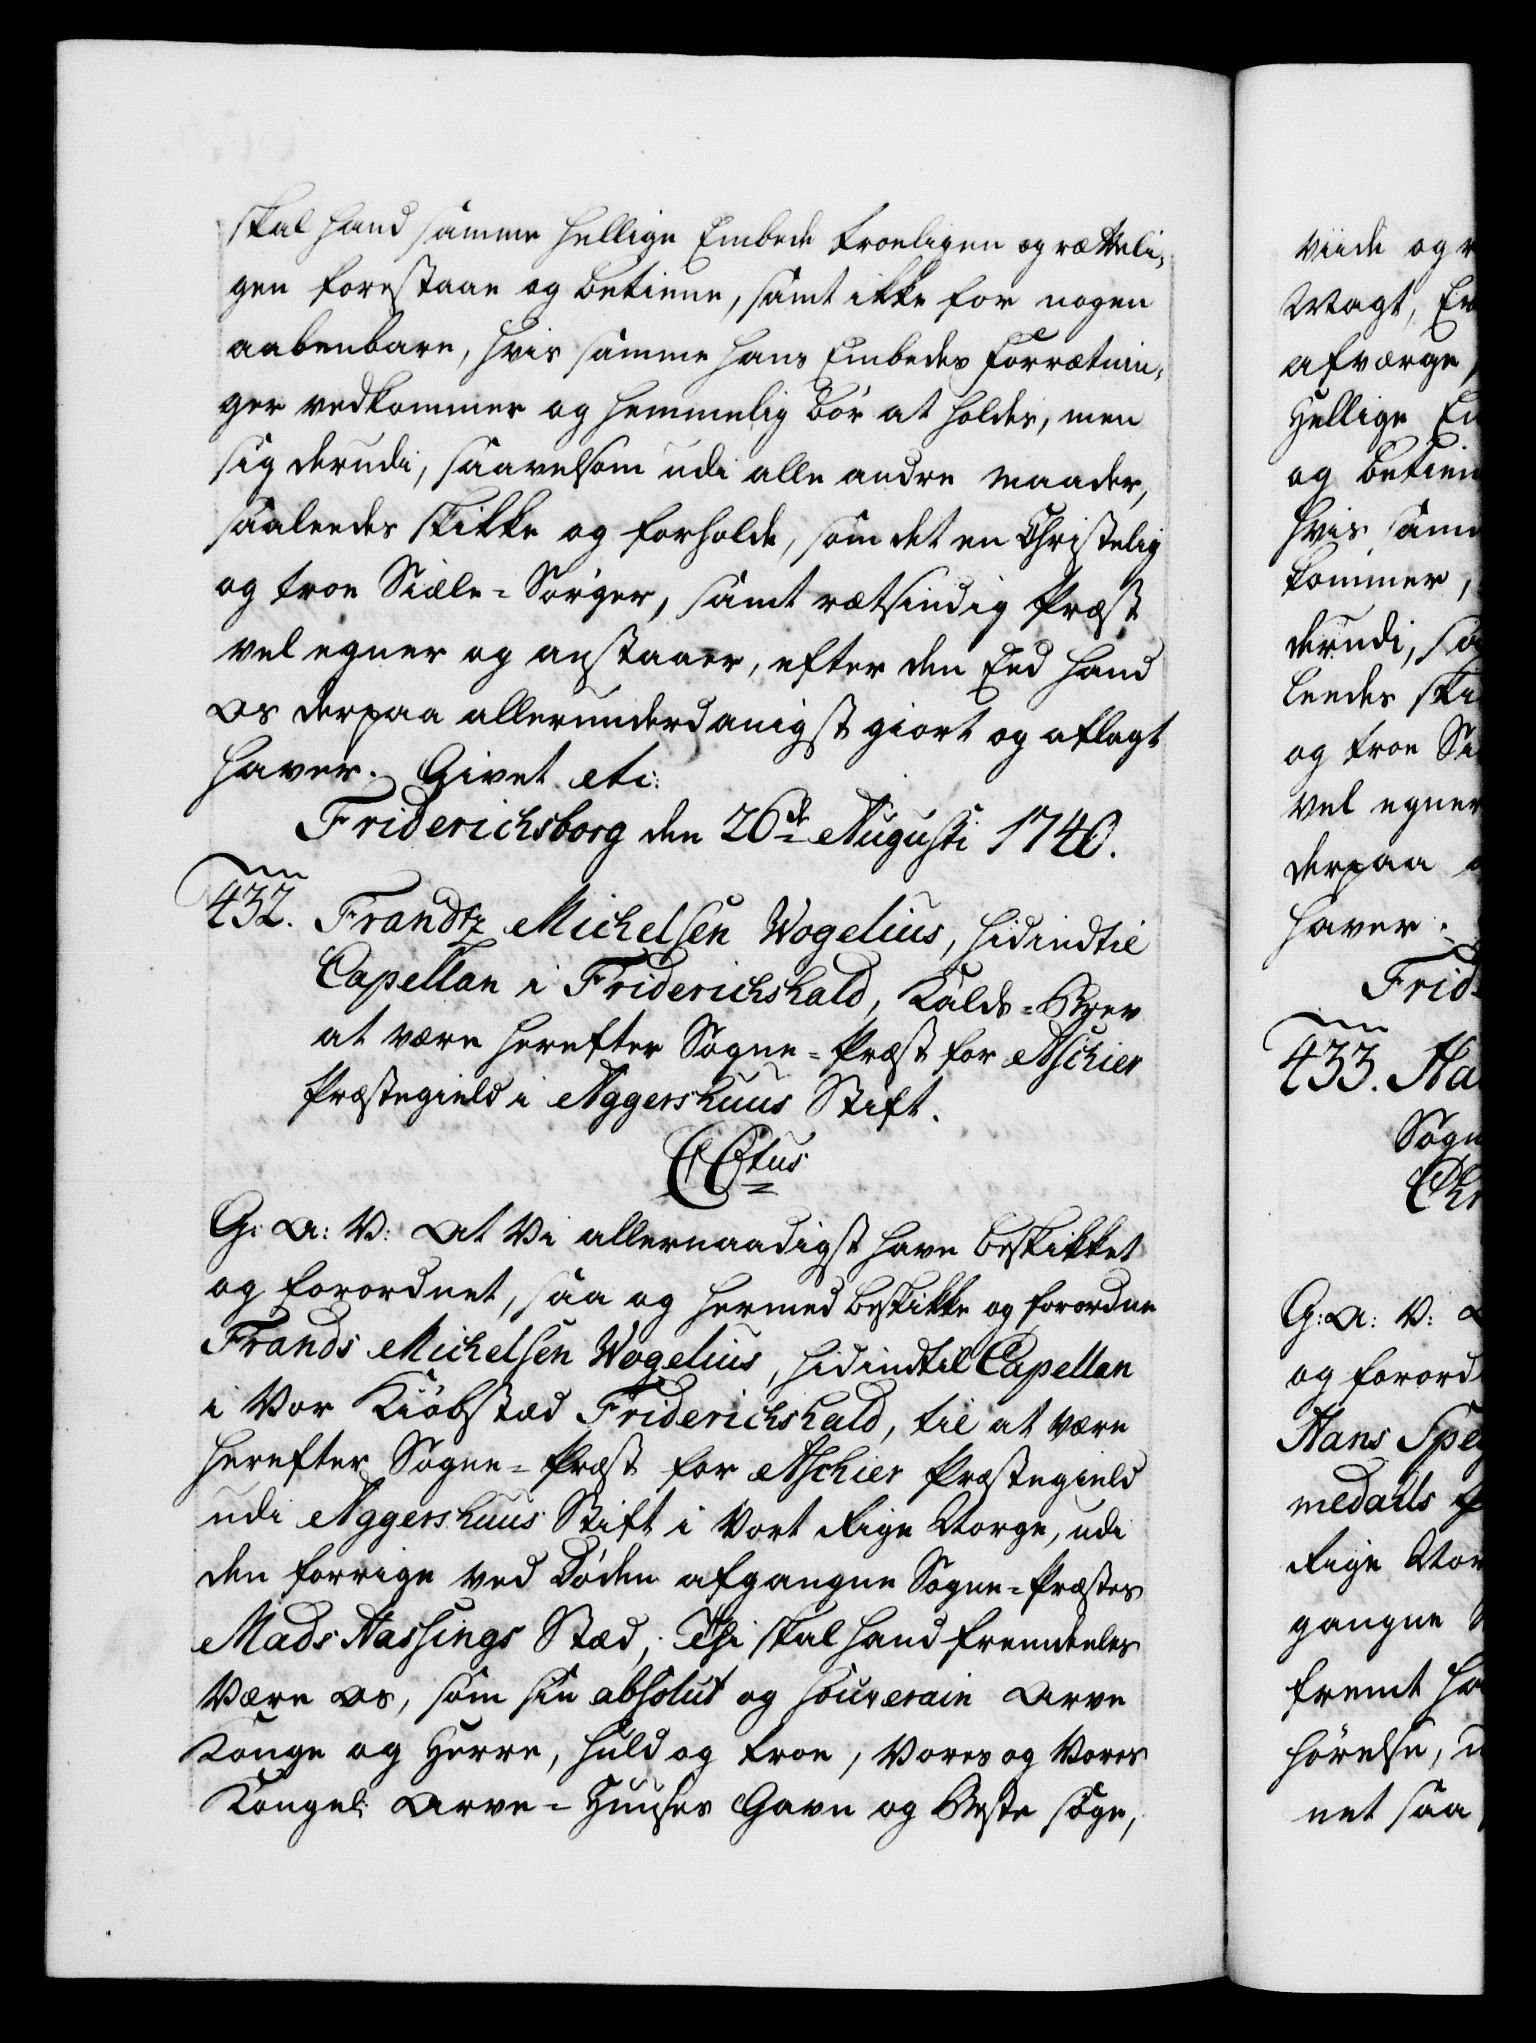 skal hand samme hellige Embede troeligen og rætteli-
gen forestaae og betiene, samt ikke for nogen
aabenbare, hvis samme hans Embedes Forrætnin-
ger vedkommer og hemmelig bør at holdes, men
sig derudi, saavelsom udi alle andre Maader,
saaleedes skikke og forholde, som det en Christelig
og troe Siæle-Sørger, samt rætsindig Præst
vel egner og anstaaer, efter den Eed hand
Os derpaa allerunderdanigst giort og aflagt
haver. Givet etc:
Friderichsborg den 26de Augusti 1740.
432. Frandtz Michelsen Wogelius, hidindtil
Capellan i Friderichshald, Kalds-Brev
at være herefter Sogne-Præst for Aschier
Præstegield i Aggershuus Stift.
CCtus
G: A: V: At Vi allernaadigst have beskikket
og forordnet, saa og hermed beskikke og forordne
Frands Michelsen Wogelius, hidindtil Capellan
i Vor Kiøbstæd Friderichshald, til at være
herefter Sogne-Præst for Aschier Præstegield
udi Aggershuus Stift i Vort Rige Norge, udi
den forrige ved Døden afgangne Sogne-Præstes
Mads Hassings Stæd; Thi skal hand fremdeeles
Være Os, som sin absolut og souverain Arve
Konge og Herre, huld og troe, Vores og Vores
Kongel: Arve-Huuses Gavn og Beste søge,
viide og r
Magt, Ev
afværge
Hellige Em
og betien
hvis sam
kommer,
derudi, sa
leedes ski
og troe Si
vel egner
derpaa a
haver.
Frid
433. Ha
Sogn
Chr
G: A: V:
og forord
Hans Spe
medalls
Rige Nor
gangne
fremt ha
hørelse, u
net saa